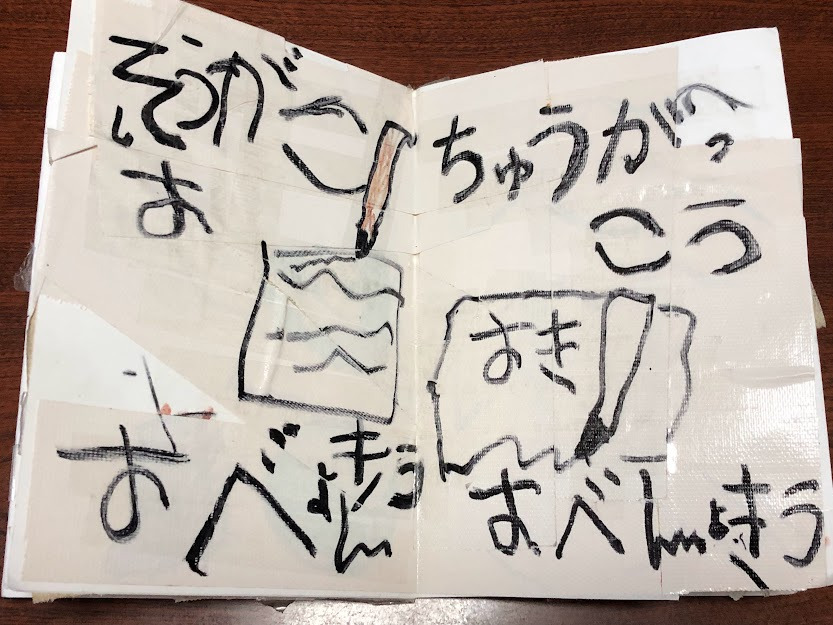 ぞうがこ
お
おべんきょう
ちゅうがっ
こう
おき
おべんきょう